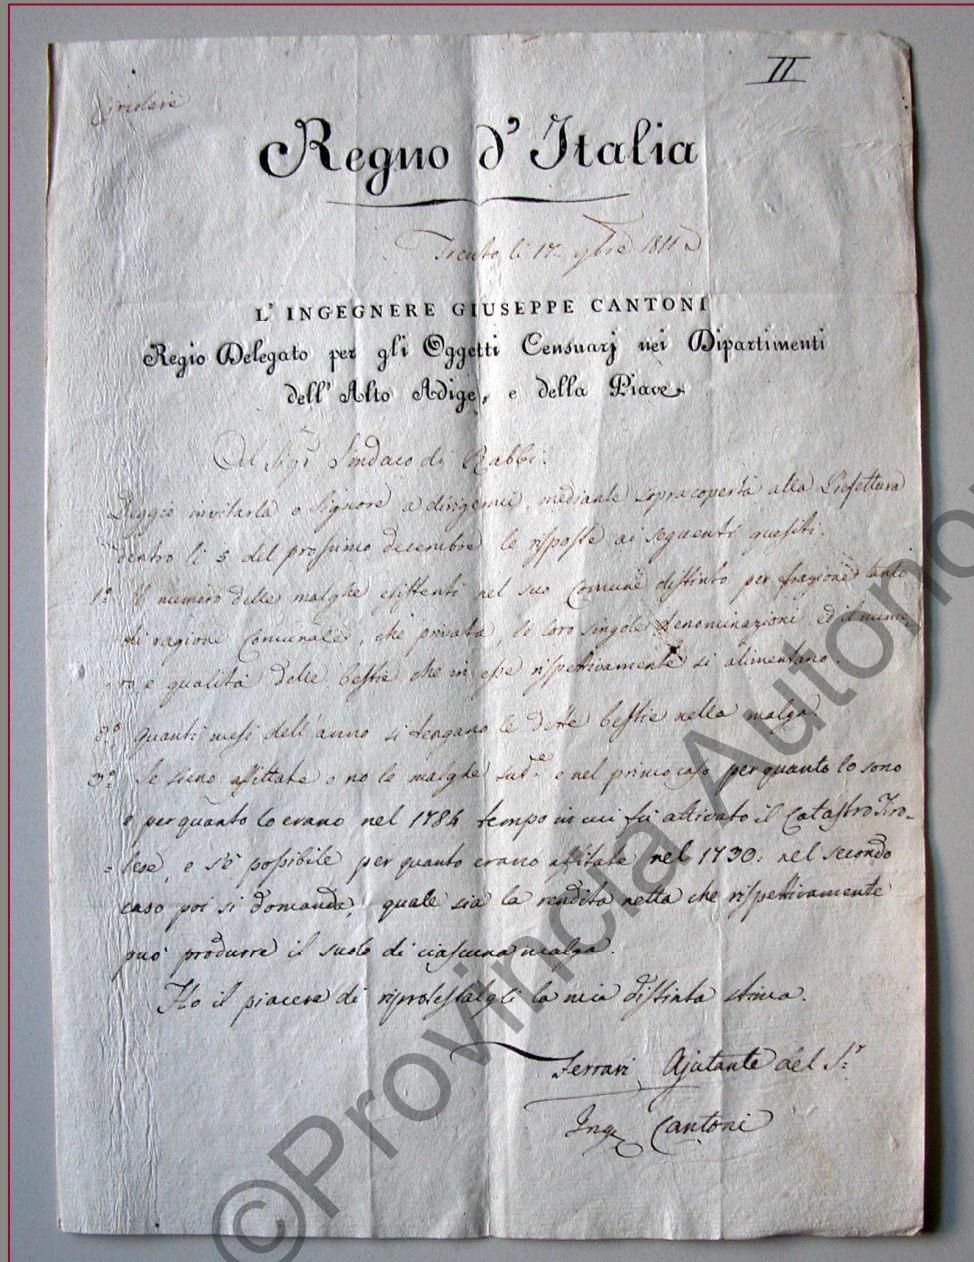 II
Circolare
Regno d'Italia
Trento li 17 9bre 1811
L'INGEGNERE GIUSEPPE CANTONI
Regio Delegato per gli Oggetti Censuarj nei Dipartimenti
dell'Alto Adige, e della Piave
Al Sigr Sindaco di Rabbi.
Deggio invitarla o Signore a dirigermi, mediante sopracoperta alla Prefettura
dentro li 5 del prossimo decembre le risposte ai seguenti quesiti.
1º Il numero delle malghe esistenti nel suo Comune distinto per fragione tanto
di ragione Comunale, che privata, le loro singole denominazioni, ed il nume
ro e qualità delle bestie che in esse rispettivamente si alimentano.
2º Quanti mesi dell'anno si tengano le dette bestie nella malga
3º Se sieno affittate o no le malghe sudde e nel primo caso per quanto lo sono
e per quanto lo erano nel 1784 tempo in cui fu attivato il Catastro Tiro-
=lese, e s'è possibile per quanto erano affitate nel 1730: nel secondo
caso poi si domanda, quale sia la rendita netta che rispettivamente
può produrre il suolo di ciascuna malga.
Ho il piacere di riprotestargli la mia distinta stima.
Ferrari Ajutante del Sr
Inge Cantoni
©Provincia Autono